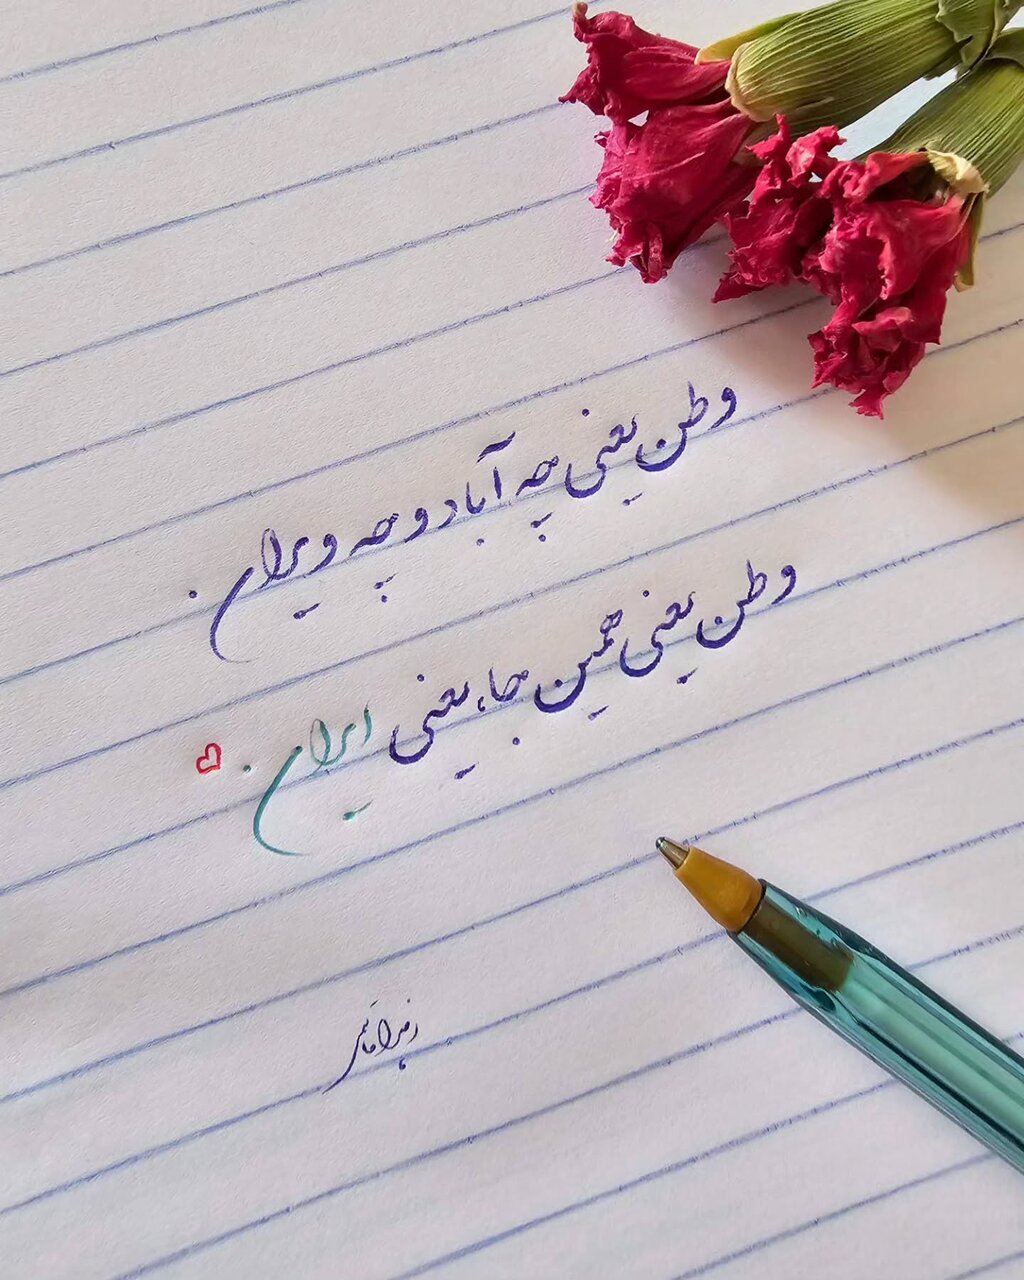 وطن یعنی چه آباد و چه ویران.
وطن یعنی همین جا، یعنی ایران.